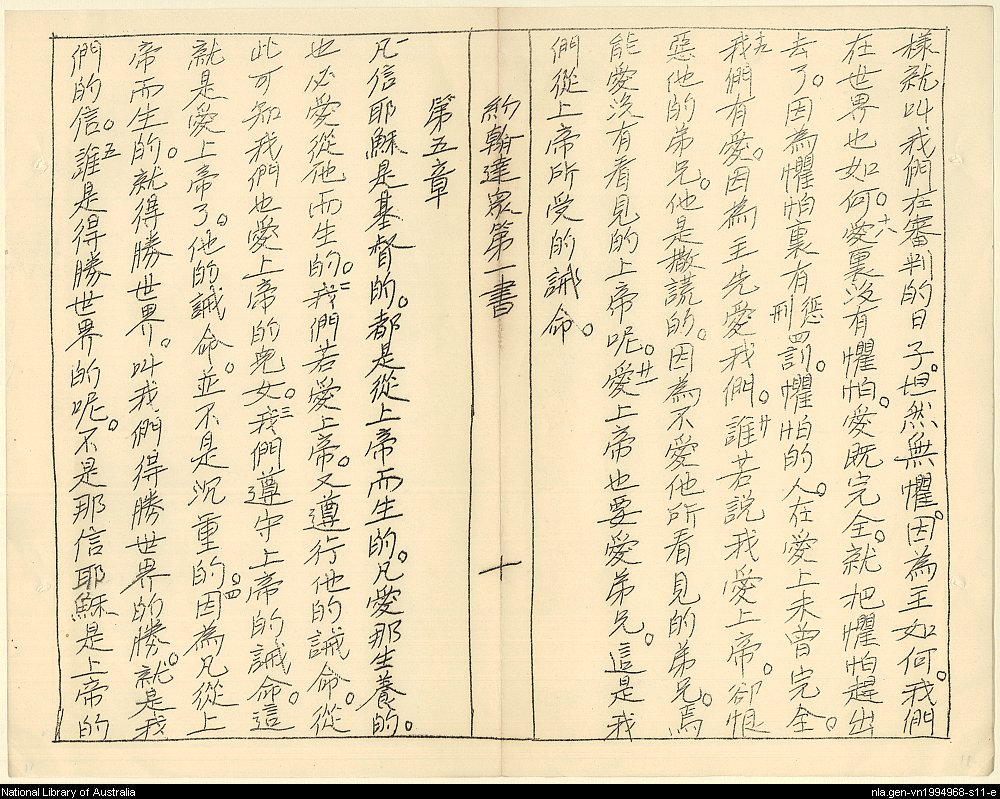 樣就叫我們在審判的日子。坦然無懼。因為主如何。我們
在世界也如何。十八愛裏沒有懼怕。愛既完全。就把懼怕趕出
去了。因為懼怕裏有刑懲罰。懼怕的人。在愛上未曾完全。
十九我們有愛。因為主先愛我們。廿誰若說我愛上帝。卻恨
惡他的弟兄。他是撒謊的。因為不愛他所看見的弟兄。焉
能愛沒有看見的上帝呢。廿一愛上帝也要愛弟兄。這是我
們從上帝所受的誡命。
約翰達眾第一書
十
第五章
一凡信耶穌是基督的。都是從上帝而生的。凡愛那生養的。
也必愛從他而生的。二我們若愛上帝。又遵行他的誡命。從
此可知我們也愛上帝的兒女。三我們遵守上帝的誡命。這
就是愛上帝了。他的誡命。並不是沉重的。四因為凡從上
帝而生的。就得勝世界。叫我們得勝世界的勝。就是我
們的信。五誰是得勝世界的呢。不是那信耶穌是上帝的
National Library of Australia
nla.gen-vn1994968-s11-e